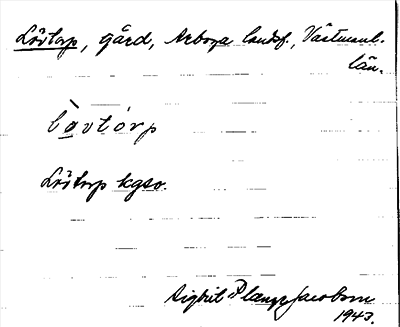 Lövtorp, gård, Arboga landsf., Västmanl.
län.
lo̠vtórp
Lövtorp kgso.
Sigbrit Plænge Jacobson
1943.